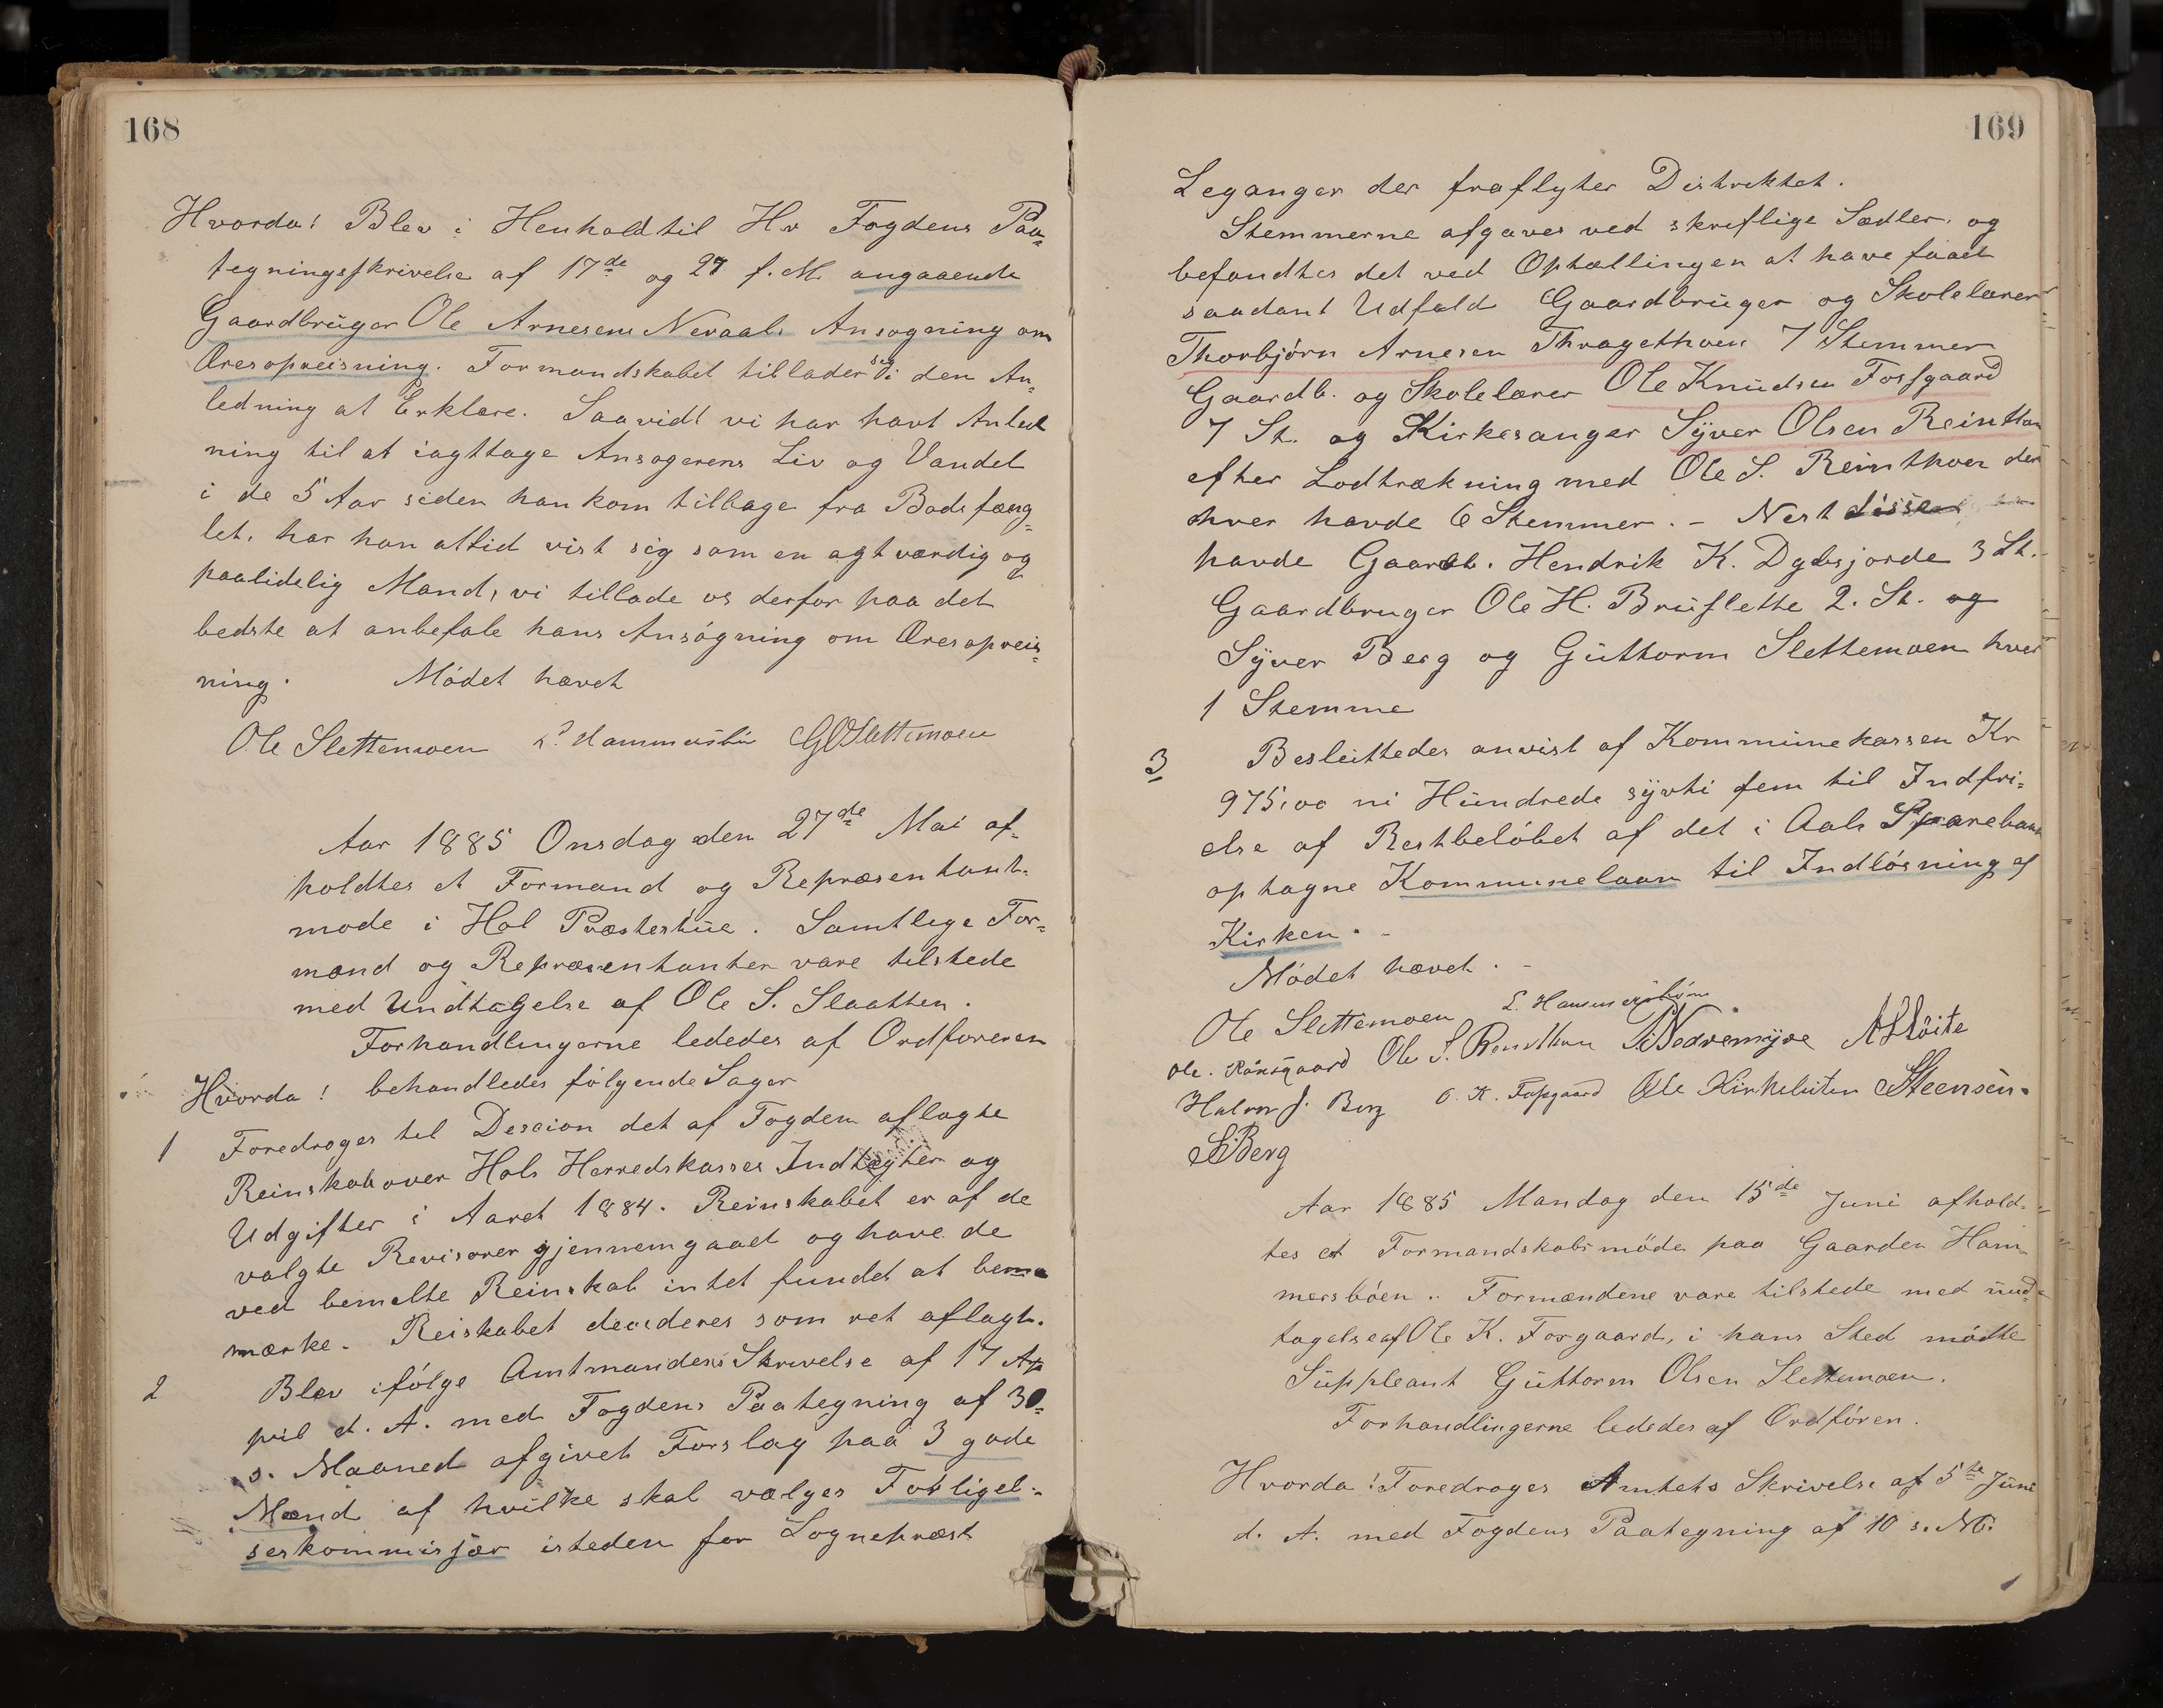 168
Hvorda! Blev i Henhold til Hr Fogdens Paa-
tegningsskrivelse af 17de og 27 f. M. angaaende
Gaardbruger Ole Arnesens Neraals Ansøgning om
Æresopreisning. Formandskabet tillader sig i den An-
ledning at Erklære. Saavidt vi har havt Anled
ning til at iagttage Ansøgerens Liv og Vandel
i de 5 Aar siden han kom tilbage fra Bodsfæng-
let, har han altid vist sig som en agtværdig og
paalidelig Mand, vi tillade os derfor paa det
bedste at anbefale hans Ansøgning om Æresopreis-
ning. Mödet hævet
Ole Slettemoen L. Hammersbøn GOSlettemoen
Aar 1885 Onsdag den 27de Mai af-
holdtes et Formand og Repræsentant-
møde i Hol Præstestue. Samtlige For-
mænd og Repræsentanter vare tilstede
med Undtagelse af Ole S. Slaatten.
Forhandlingerne lededes af Ordføreren
Hvorda! behandledes følgende Sager
1 Foredroges til Descion det af Fogden aflagte
Reinskab over Hols Herredskasses Indtægter og
Udgifter i Aaret 1884. Reinskabet er af de
valgte Revisorer gjennemgaaet og have de
ved bemelte Reinskab intet fundet at beme
mærke. Reiskabet desideres som ret aflagt.
2 Blev ifölge Amtmandens Skrivelse af 17 Ap
pril d. A. med Fogdens Paategning af 30-
s. Maaned afgivet Forslag paa 3 gode
Mænd af hvilke skal vælges Forligel-
seskommisjær isteden for Sognepræst
169
Leganger der fraflytter Distriktet.
Stemmerne afgaves ved skriftlige Sædler. og
befandtes det ved Optællingen at have faaet
saadant Udfald Gaardbruger og Skolelærer
Thorbjörn Arnesen Thragethoen 7 Stemmer
Gaardb. og Skolelærer Ole Knudsen Fossgaard
7 St. og Kirkesanger Syver Olsen Reintton
efter Lodtrækning med Ole S. Reinthoen der
hver havde 6 Stemmer. - Nest disse
havde Gaardb. Hendrik K. Dybsjorde 3 St.
Gaardbruger Ole H. Bruslette 2. St. og
Syver Berg og Guttorm Slettemoen hver
1 Stemme
3 Besluttedes anvist af Kommunekassen Kr
975,00 ni Hundrede syvti fem til Indfri-
else af Restbelöbet af det i Aals Sparebank
optagne Kommunelaan til Indlösning af
Kirken. -
Mödet hævet. -
Ole Slettemoen L. Hammersbøen
Ole. Raansgaard Ole S. Reintton Nedremyre
Halvor J. Berg O. K. Fosgaard Ole Kirkebiten Steensen.
SBerg
Aar 1885 Mandag den 15de Juni afhold-
tes et Formandskabsmöde paa Gaarden Ham-
mersböen. Formændene vare tilstede med und-
tagelse af Ole K. Forgaard, i hans Sted mödte
Suppleant Guttorm Olsen Slettemoen.
Forhandlingerne lededes af Ordfören.
Hvorda! Foredroges Amtets Skrivelse af 5te Juni
d. A. med Fogdens Paategning af 10 s. M.